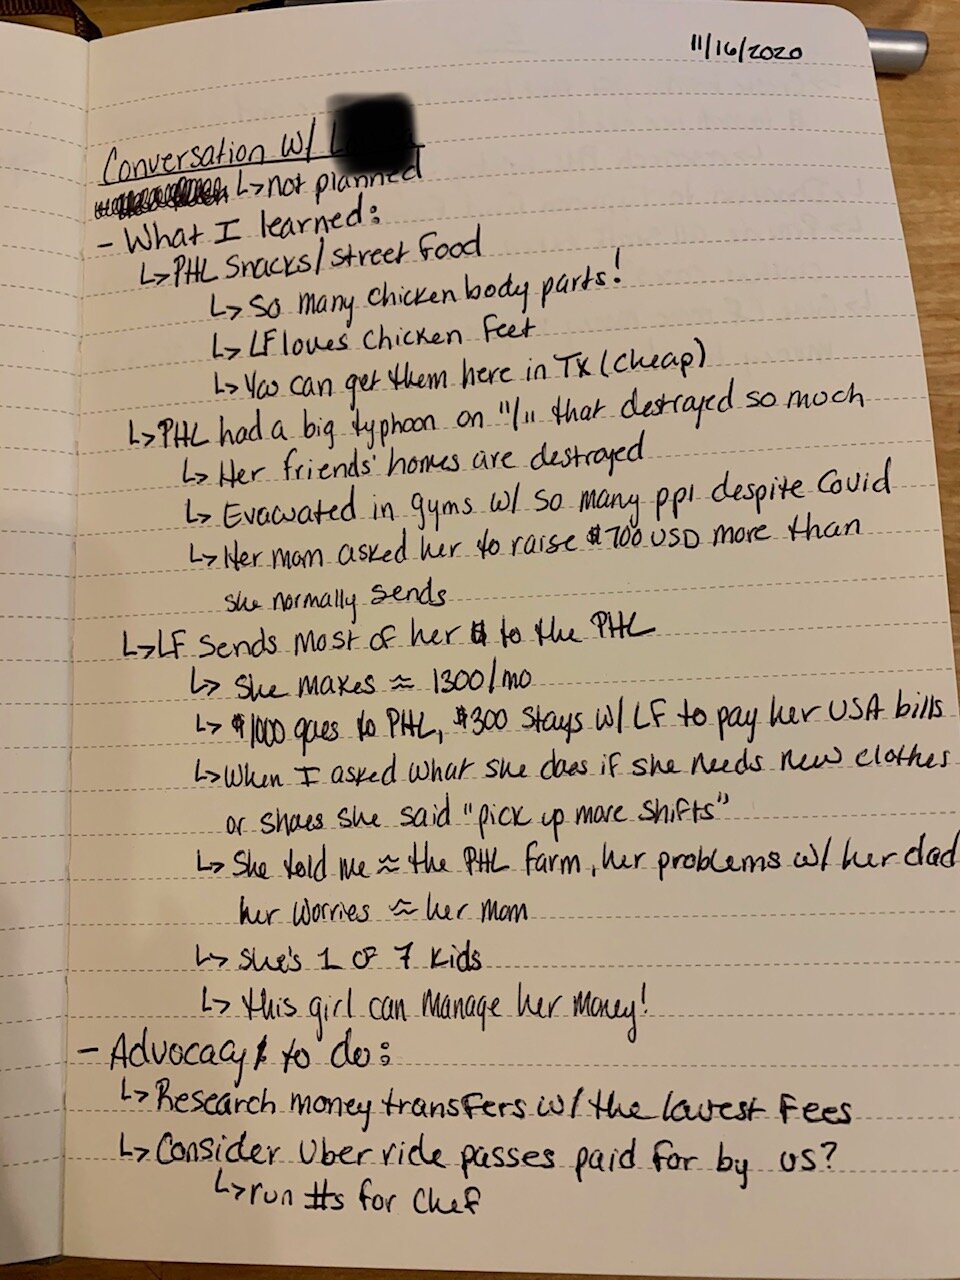 11/16/2020
Conversation w/ L
↳ not planned
- What I learned:
↳ PHL Snacks/street food
↳ So many chicken body parts!
↳ LF loves chicken feet
↳ You can get them here in TX (cheap)
↳ PHL had a big typhoon on "/" that destroyed so much
↳ Her friends' homes are destroyed
↳ Evacuated in gyms w/ so many ppl despite Covid
↳ Her mom asked her to raise $700 USD more than
she normally sends
↳ LF sends most of her $ to the PHL
↳ She makes ≈ 1300/mo
↳ $1000 goes to PHL, $300 stays w/ LF to pay her USA bills
↳ When I asked what she does if she needs new clothes
or shoes she said "pick up more shifts"
↳ She told me ≈ the PHL farm, her problems w/ her dad
her worries ≈ her mom
↳ She's 1 of 7 kids
↳ this girl can manage her money!
- Advocacy to do:
↳ Research money transfers w/ the lowest fees
↳ Consider Uber ride passes paid for by us?
↳ run #s for Chef